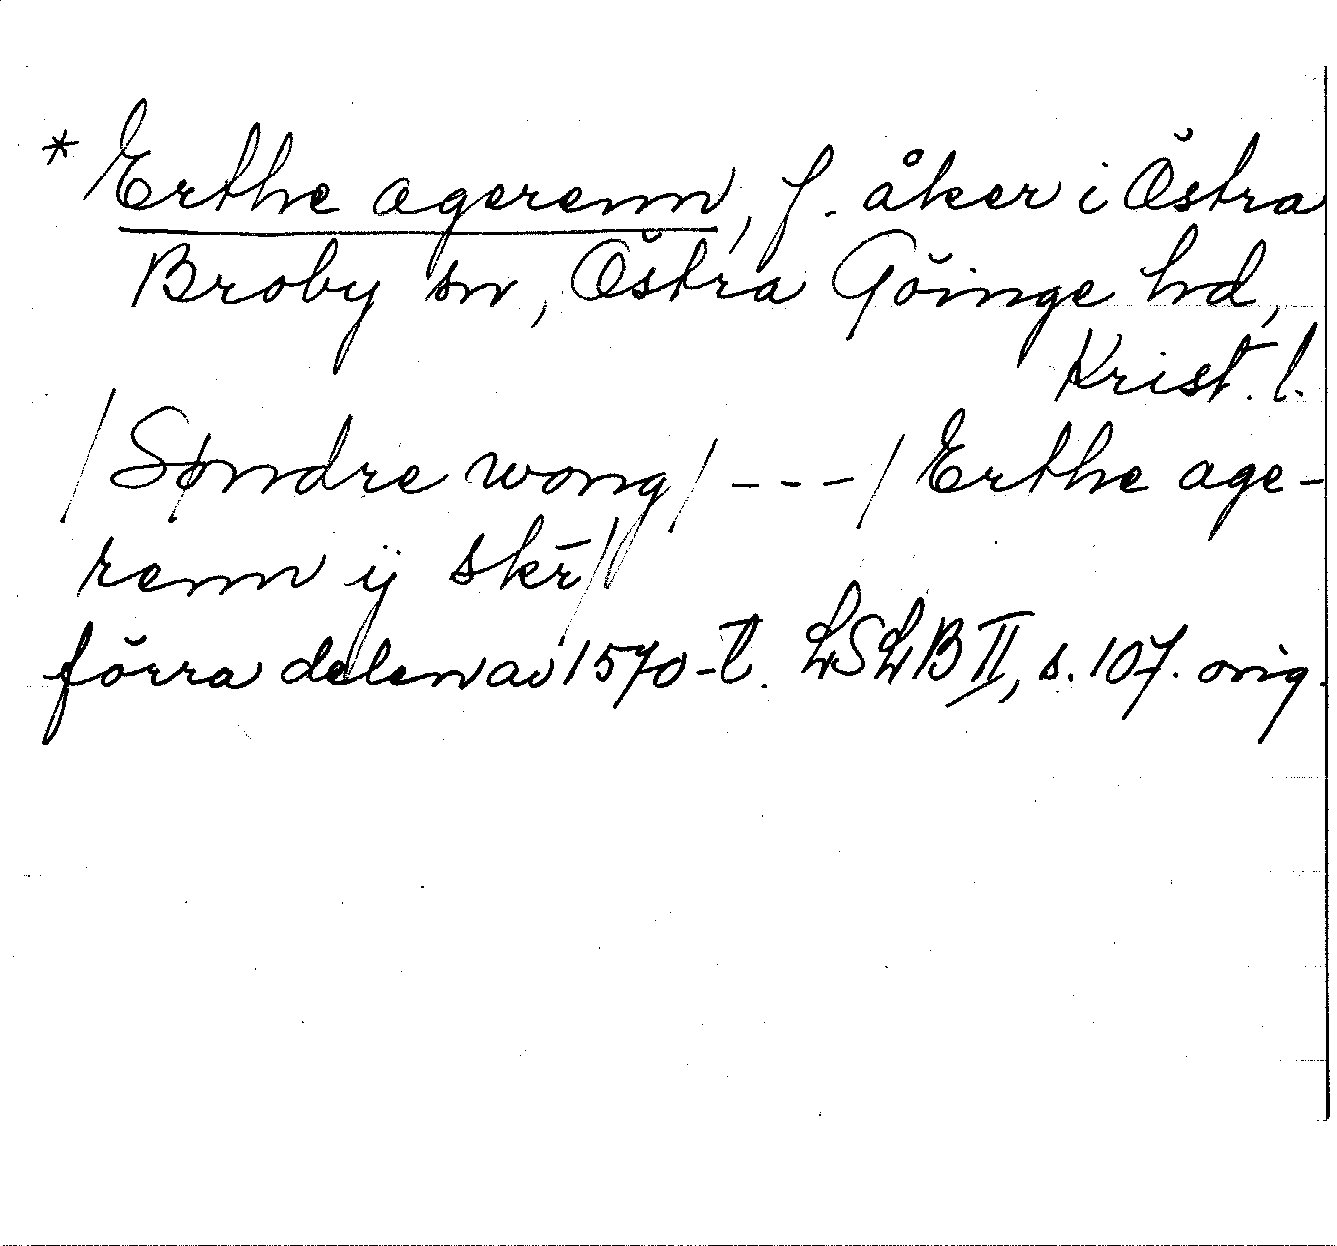 * Erthe agerenn, f. åker i Östra
Broby sn, Östra Göinge hd,
Krist. l.
/Søndre wong/ - - - / Erthe age-
renn ij skr̄/
förra delen av 1570-t. LSLB II, s. 107. orig.